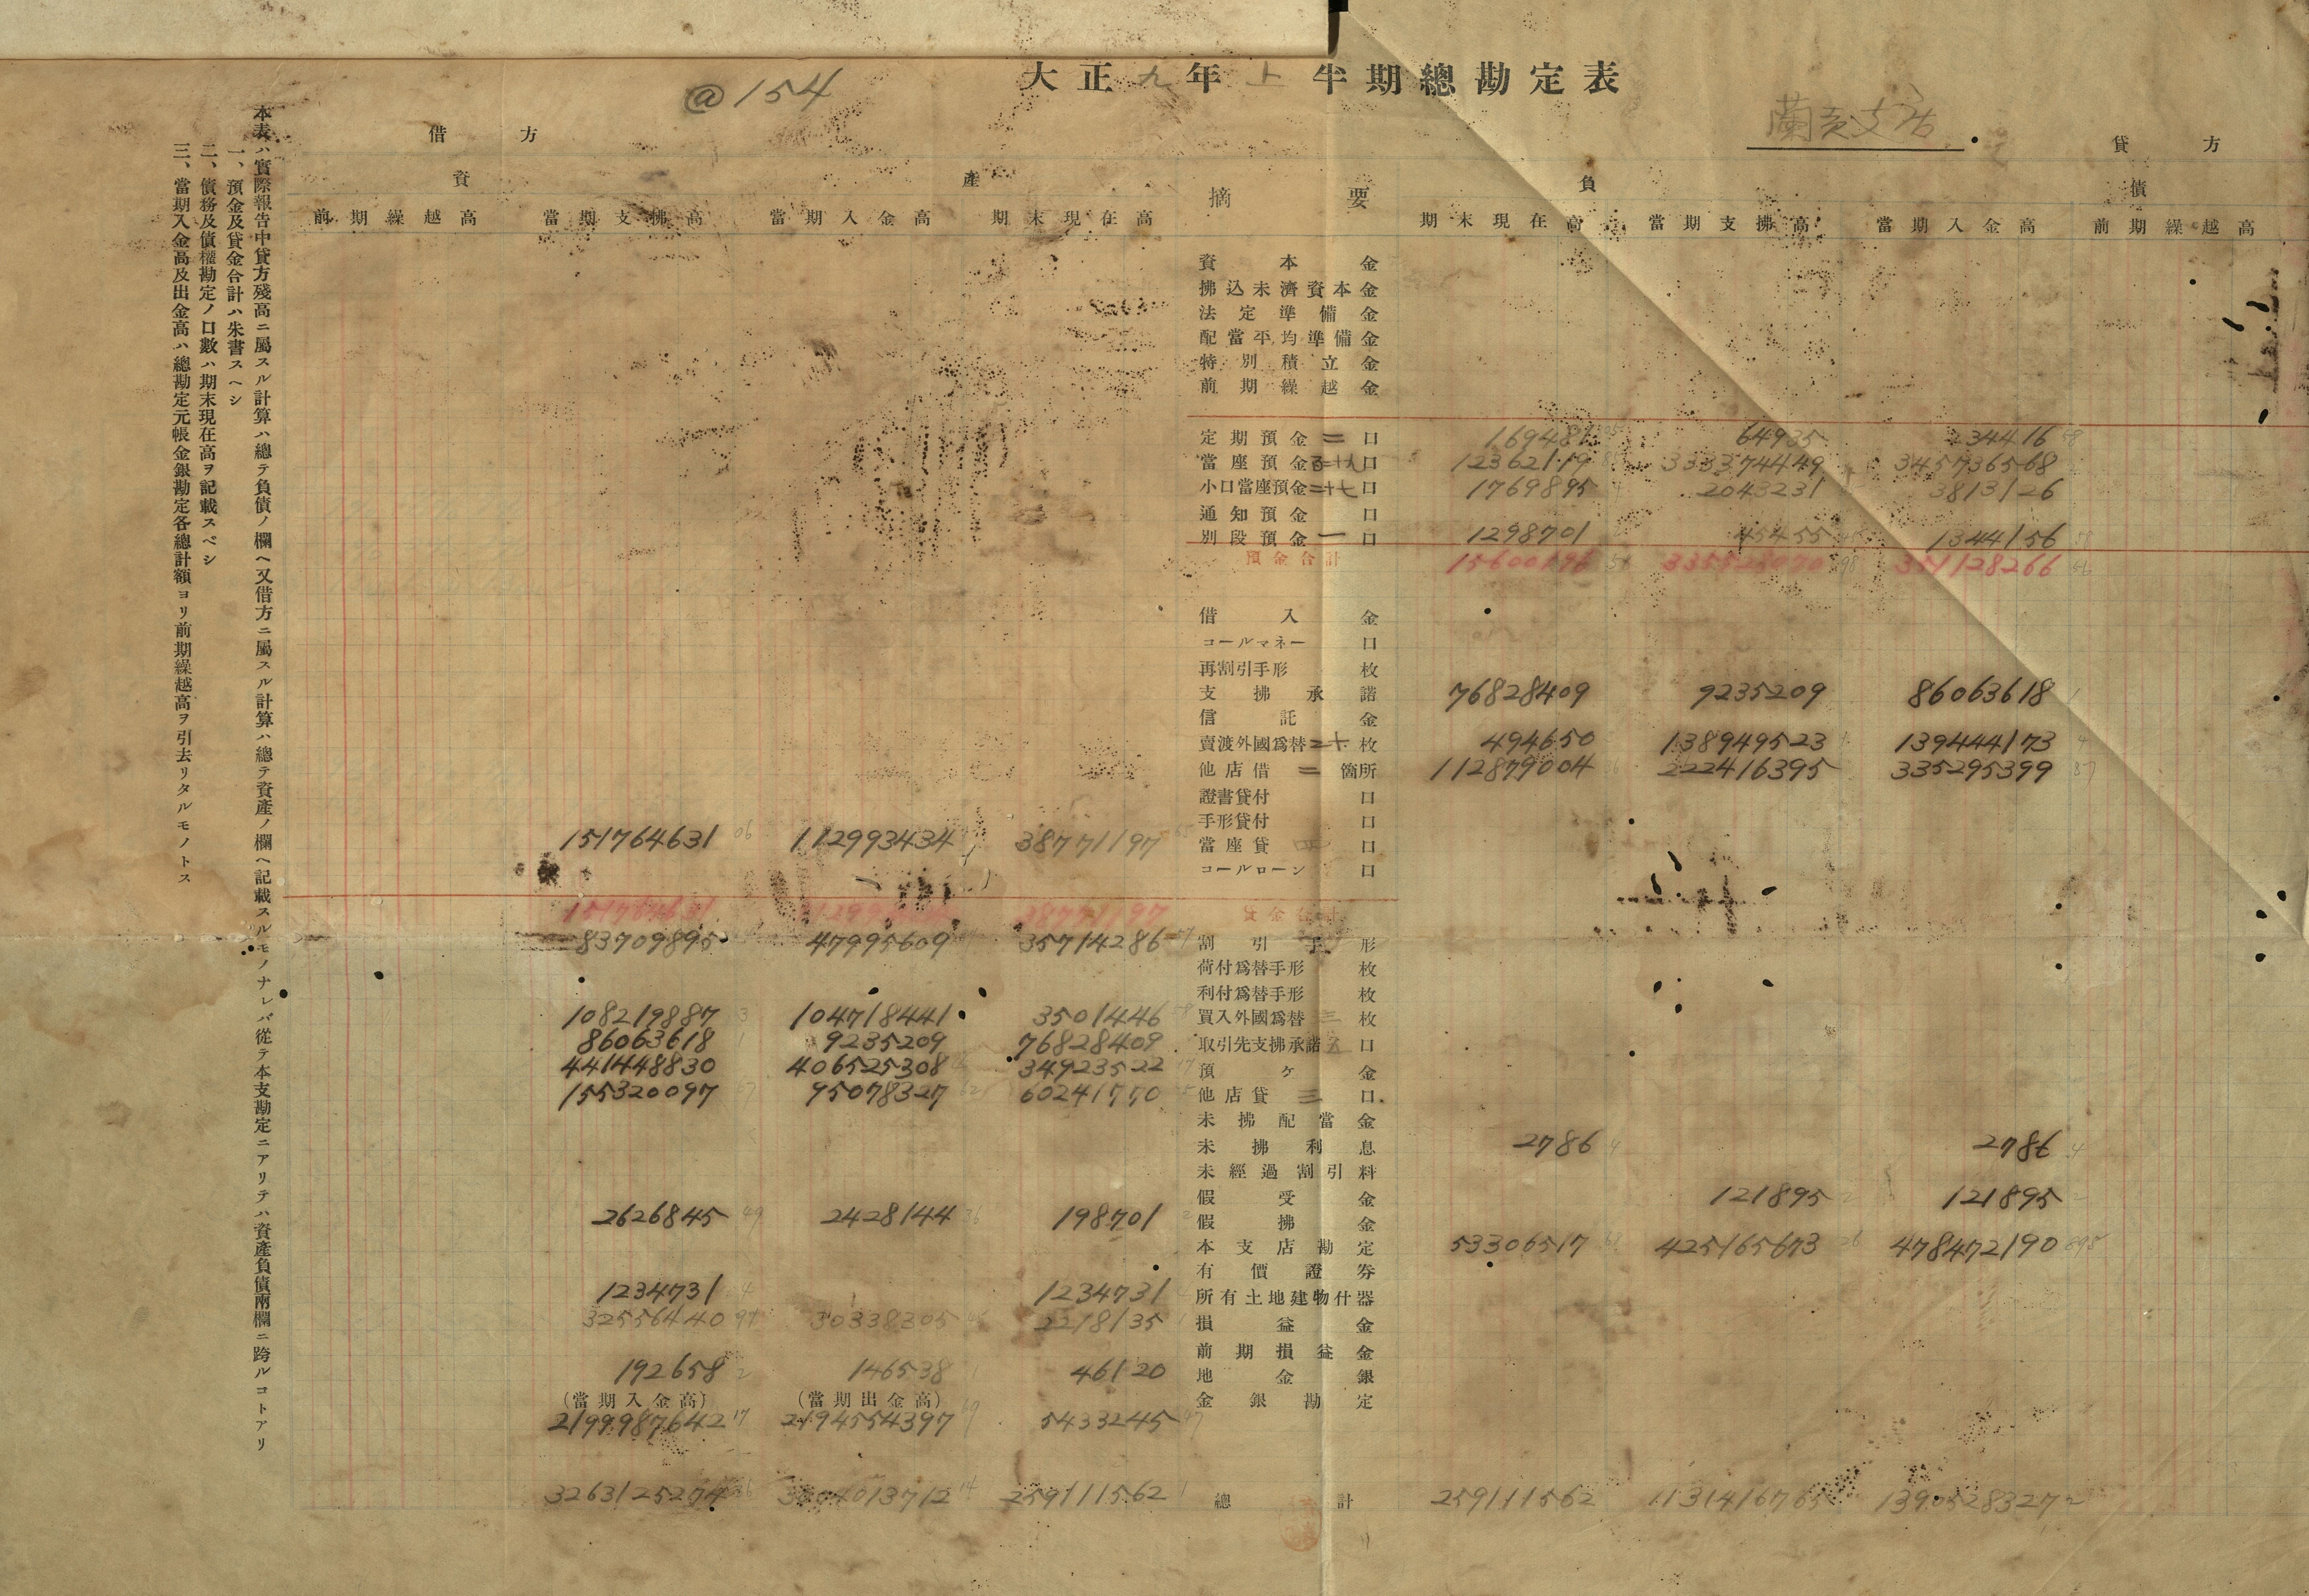 大正九年上半期總勘定表
@154
蘭貢支店
借方
貸方
資產
摘要
負債
前期繰越高 當期支拂高 當期入金高 期末現在高 期末現在高 當期支拂高 當期入金高 前期繰越高
資本金
拂込未濟資本金
法定準備金
配當平均準備金
特別積立金
前期繰越金
定期預金 二 口 169481 64935 234416 58
當座預金 百二十九 口 12362119 333374449 345736568
小口當座預金 二十七 口 1769895 2043231 3813126
通知預金 口
別段預金 一 口 1298701 45455 1344156
預金合計 15600196 335528070 98 351128266 56
借入金
コールマネー 口
再割引手形 枚
支拂承諾 76828409 9235209 86063618 1
信託金
賣渡外國爲替 二十 枚 494650 138949523 139444173 4
他店借 二 箇所 112879004 222416395 335295399 87
證書貸付 口
手形貸付 口
151764631 06 112993434 38771197 當座貸 口
コールローン 口
151764631 38771197 貸金合計
83709895 47995609 35714286 割引手形
荷付爲替手形 枚
利付爲替手形 枚
108219887 3 104718441 3501446 58 買入外國爲替 三 枚
86063618 1 9235209 76828409 取引先支拂承諾 口
441448830 406525308 34923522 17 預ケ金
155320097 95078327 60241770 他店貸 三 口
未拂配當金
未拂利息 2786 4 2786 4
未經過割引料
假受金 121895 2 121895 2
2626845 49 2428144 36 198701 假拂金
本支店勘定 53306517 425165673 26 478472190
有價證券
1234731 4 1234731 所有土地建物什器
32556440 94 30338305 2218135 損益金
前期損益金
192658 2 146538 46120 地金銀
(當期入金高) (當期出金高) 金銀勘定
2199987642 17 2194554397 69 5433245 47
3263125274 259111562 總計 259111562 1131416765 1390528327 2
本表ハ實際報告中貸方殘高ニ屬スル計算ハ總テ負債ノ欄ヘ又借方ニ屬スル計算ハ總テ資產ノ欄ヘ記載スルモノナレバ從テ本支勘定ニアリテハ資產負債兩欄ニ跨ルコトアリ
一、預金及貸金合計ハ朱書スヘシ
二、債務及債權勘定ノ口數ハ期末現在高ヲ記載スベシ
三、當期入金高及出金高ハ總勘定元帳金銀勘定各總計額ヨリ前期繰越高ヲ引去リタルモノトス